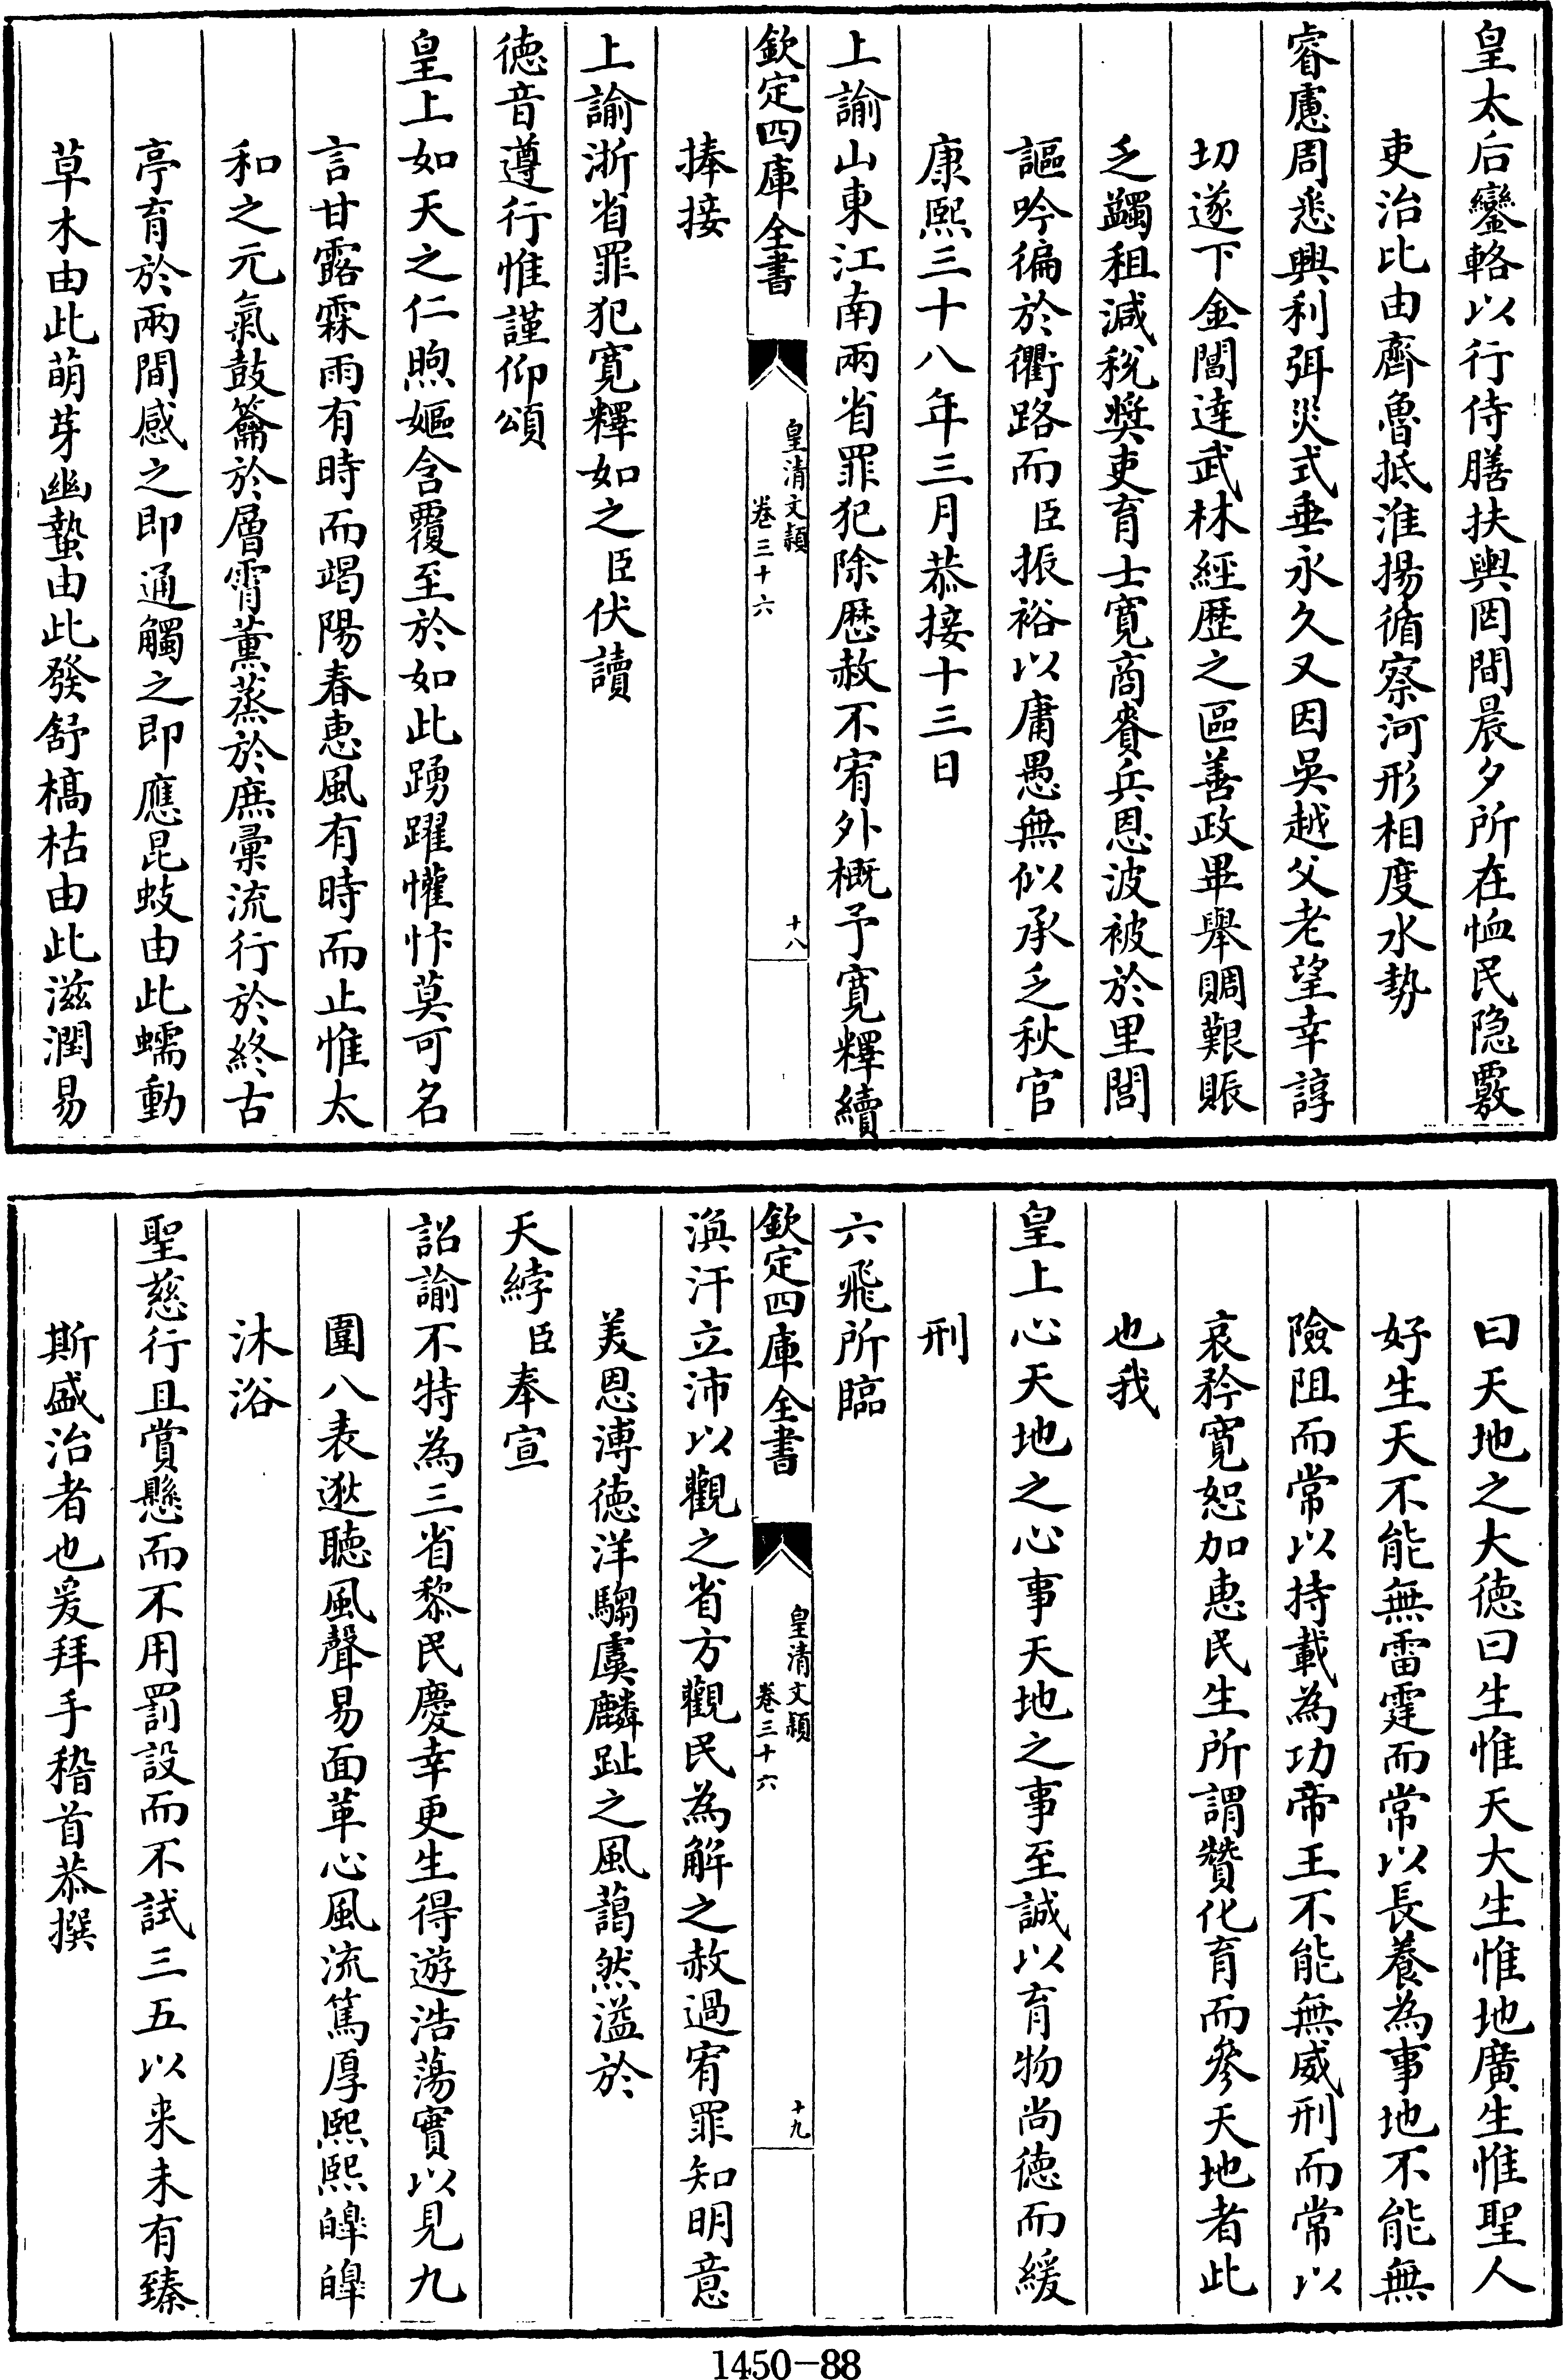 皇太后鑾輅以行侍膳扶輿罔間晨夕所在恤民隐覈
吏治比由齊魯抵淮揚循察河形相度水勢
睿慮周悉興利弭災式垂永久又因吳越父老望幸諄
切遂下金閶達武林經歴之區善政畢舉賙艱賑
乏蠲租減稅奬吏育士寛商賚兵恩波被於里閭
謳吟徧於衢路而臣振裕以庸愚無似承乏秋官
康熙三十八年三月恭接十三日
上諭山東江南兩省罪犯除歴赦不宥外概予寛釋續
欽定四庫全書
皇清文頴
卷三十六
十八
捧接
上諭浙省罪犯寛釋如之臣伏讀
德音遵行惟謹仰頌
皇上如天之仁煦嫗含覆至於如此踴躍懽忭莫可名
言甘露霖雨有時而竭陽春惠風有時而止惟太
和之元氣鼓籥於層霄薰蒸於庶彚流行於終古
亭育於兩間感之即通觸之即應昆蚑由此蠕動
草木由此萌芽幽蟄由此發舒槁枯由此滋潤易
曰天地之大德曰生惟天大生惟地廣生惟聖人
好生天不能無雷霆而常以長養為事地不能無
險阻而常以持載為功帝王不能無威刑而常以
哀矜寛恕加惠民生所謂贊化育而參天地者此
也我
皇上心天地之心事天地之事至誠以育物尚德而緩
刑
六飛所臨
欽定四庫全書
皇清文頴
卷三十六
十九
渙汗立沛以觀之省方觀民為解之赦過宥罪知明意
美恩溥德洋騶虞麟趾之風藹然溢於
天綍臣奉宣
詔諭不特為三省黎民慶幸更生得遊浩蕩實以見九
圍八表逖聽風聲易面革心風流篤厚熙熙皥皥
沐浴
聖慈行且賞懸而不用罰設而不試三五以来未有臻
斯盛治者也爰拜手稽首恭撰
1450-88